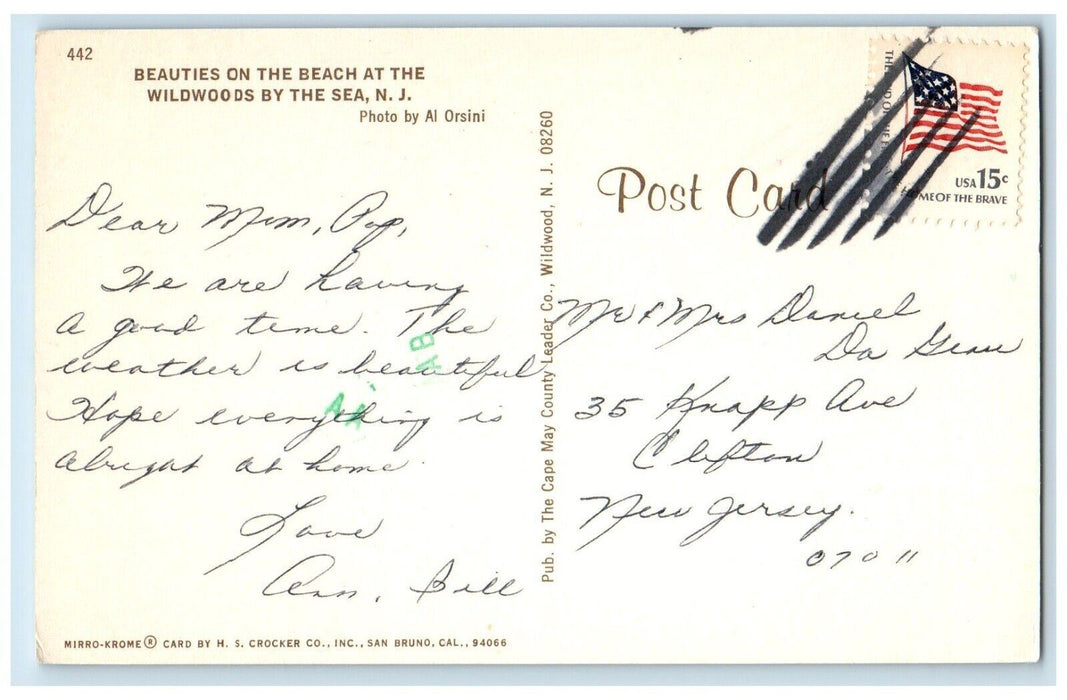 442
BEAUTIES ON THE BEACH AT THE
WILDWOODS BY THE SEA, N. J.
Photo by Al Orsini
Dear Mom, Pop,
We are having
a good time. The
weather is beautiful
Hope everything is
alright at home.
Love
Ann, Bill
MIRRO-KROME® CARD BY H. S. CROCKER CO., INC., SAN BRUNO, CAL., 94066
Pub. by The Cape May County Leader Co., Wildwood, N. J. 08260
Post Card
USA 15c
HOME OF THE BRAVE
Mr & Mrs Daniel
35 Knapp Ave
Clifton
New Jersey.
07011